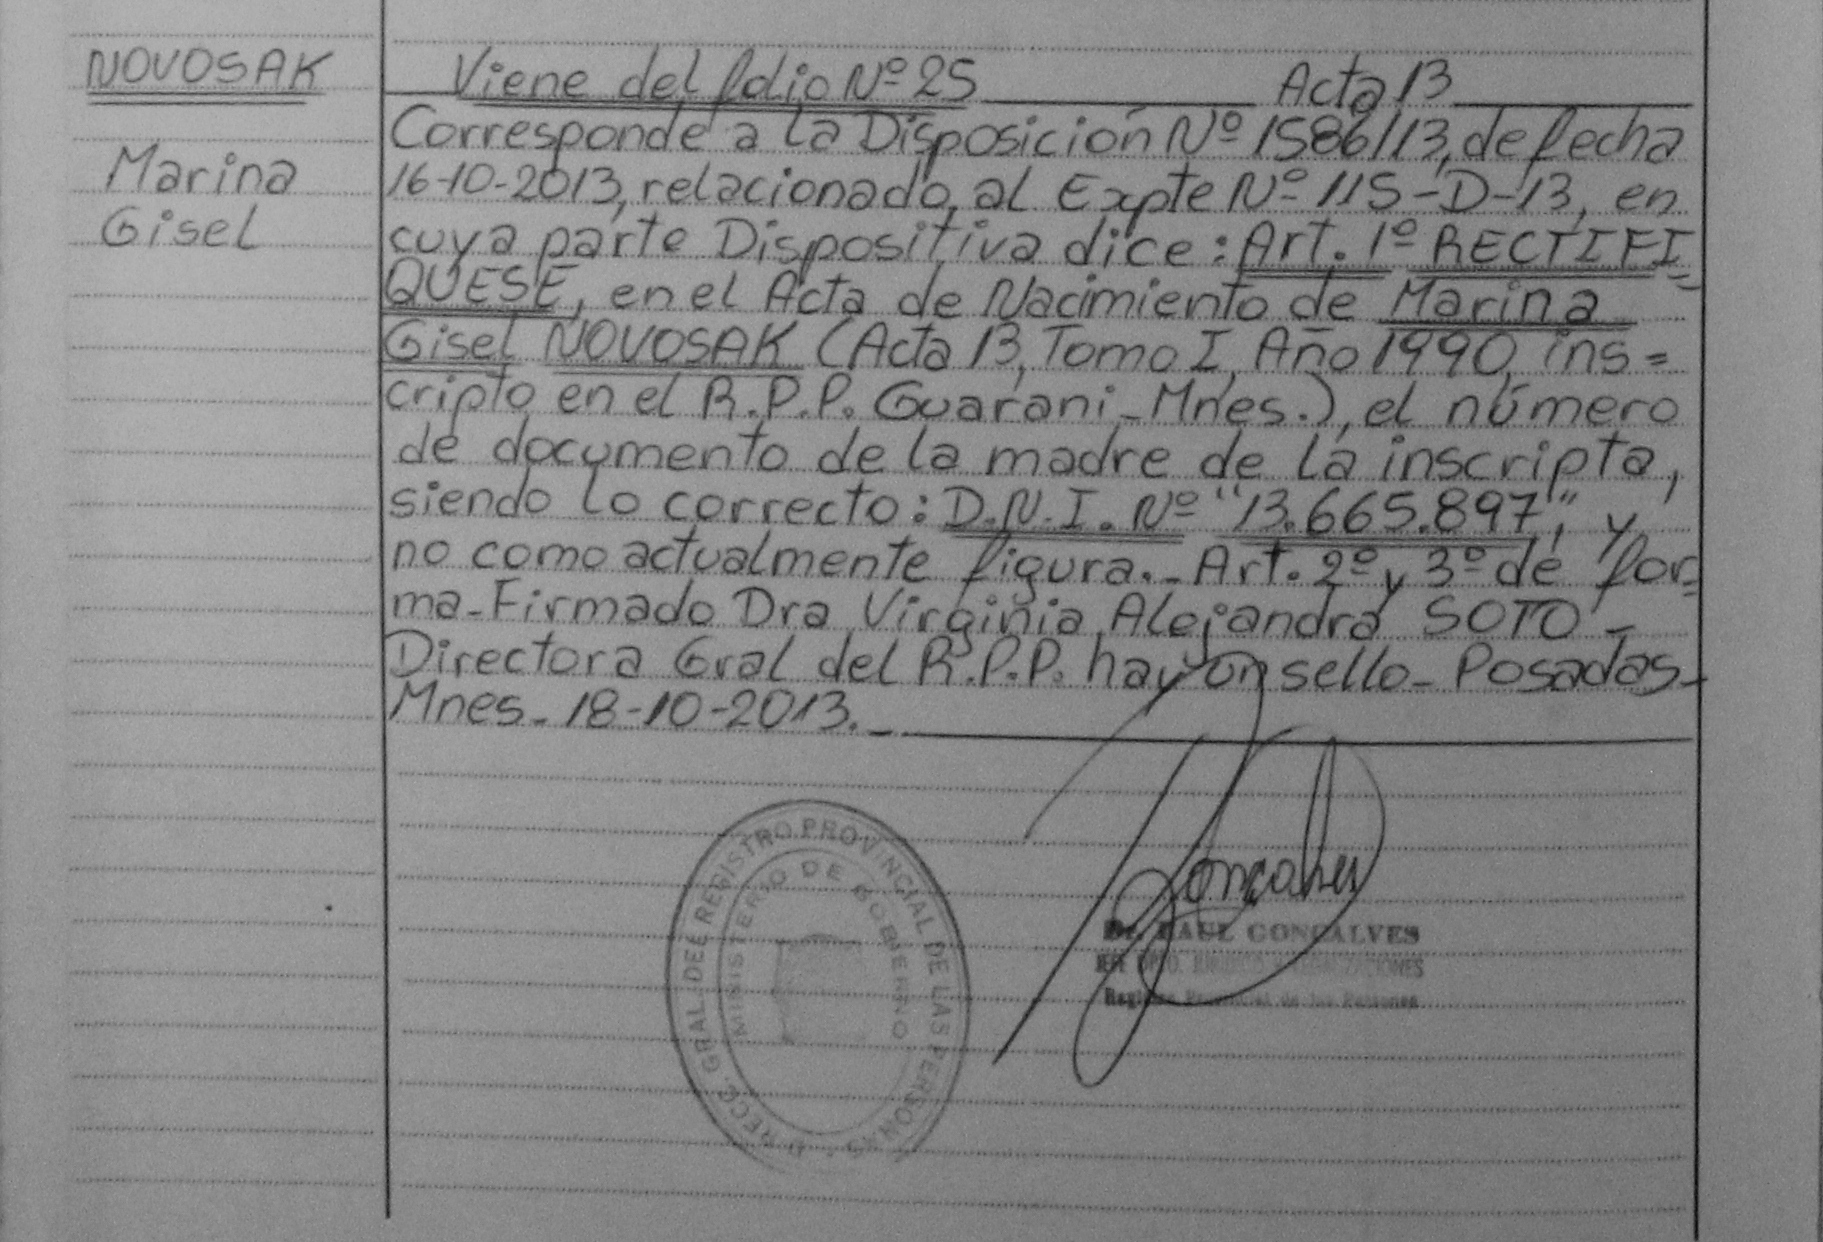 NOVOSAK
Marina
Gisel
Viene del folio Nº 25 Acta 13
Corresponde a la Disposición Nº 1586/13, de fecha
16-10-2013, relacionado al Expte Nº 115-D-13, en
cuya parte Dispositiva dice: Art. 1º RECTIFI
QUESE, en el Acta de Nacimiento de Marina
Gisel NOVOSAK (Acta 13, Tomo I, Año 1990, ins=
cripto en el R.P.P. Guarani-Mnes.), el número
de documento de la madre de la inscripta,
siendo lo correcto: D.N.I. Nº "13.665.897", y
no como actualmente figura.- Art. 2º y 3º de for=
ma-Firmado Dra Virginia Alejandra SOTO-
Directora Gral del R.P.P. hay un sello- Posadas-
Mnes- 18-10-2013.-
DIRECC. GRAL. DEL REGISTRO PROVINCIAL DE LAS PERSONAS
MINISTERIO DE GOBIERNO
Goncalves
Dr. RAUL GONCALVES
JEFE DPTO.
Registro Provincial de las Personas